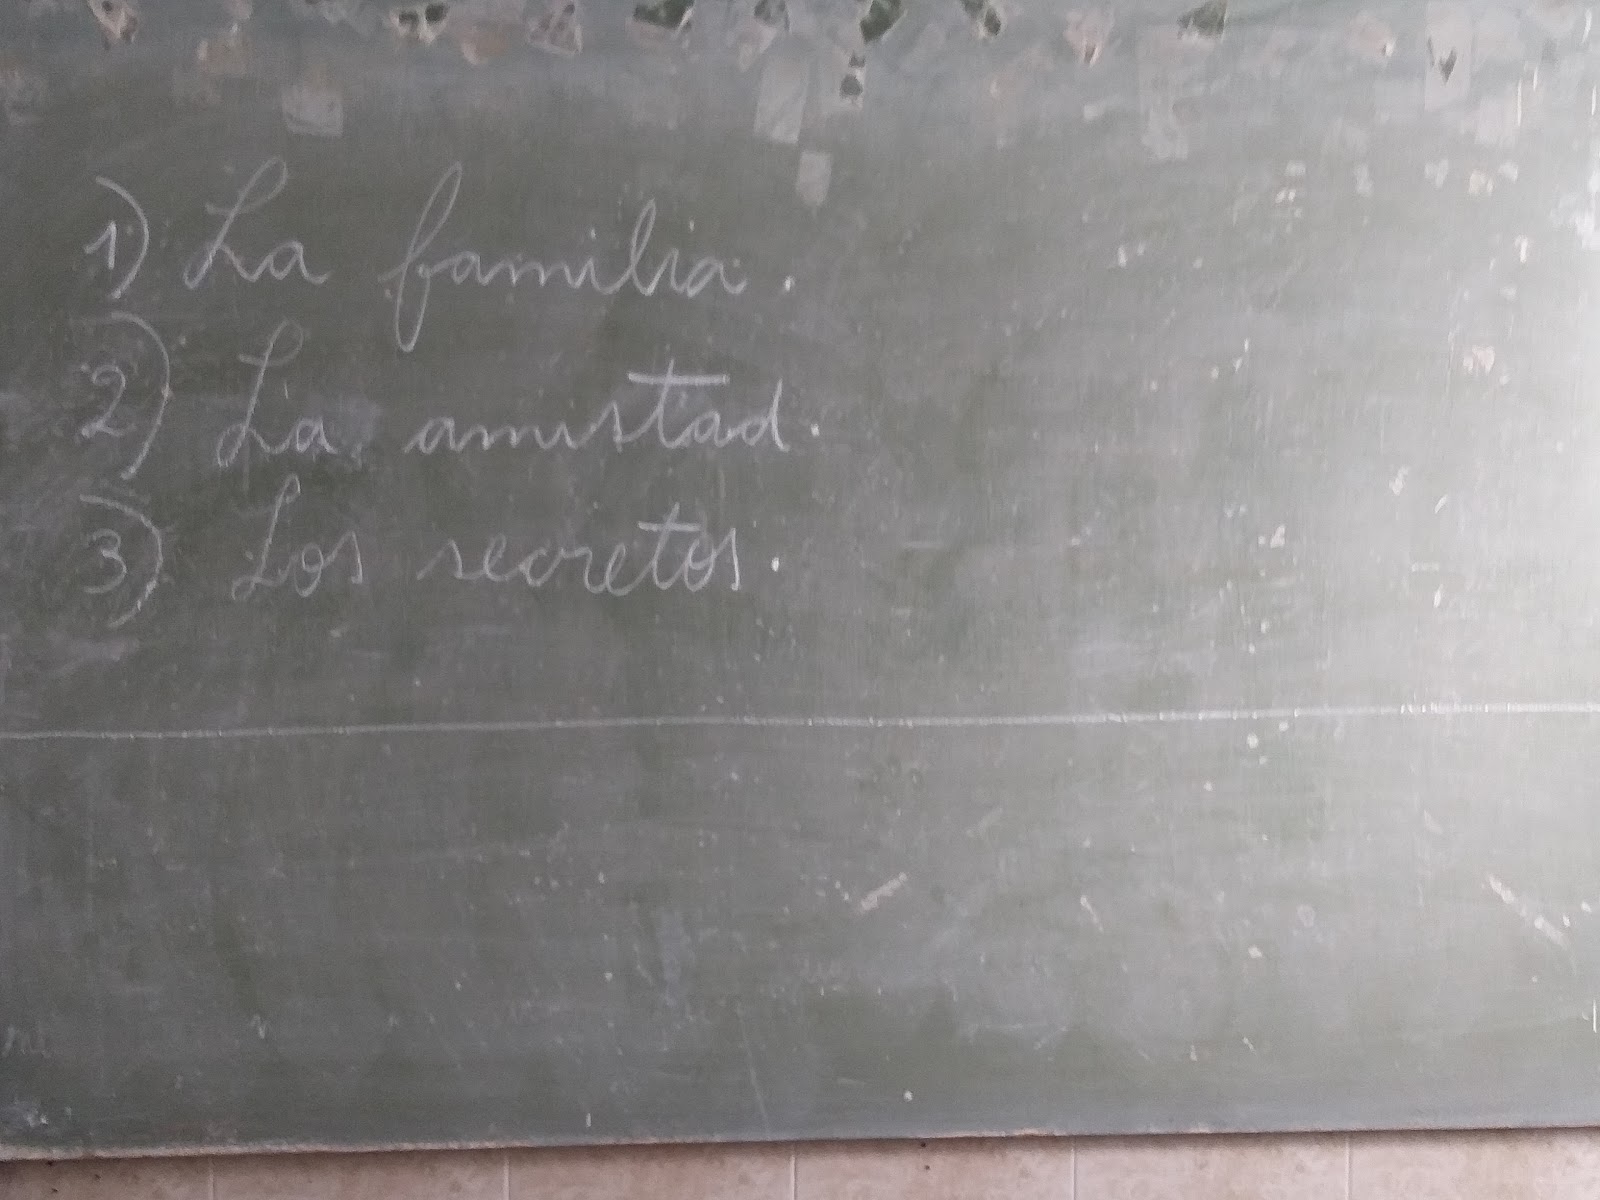 1) La familia.
2) La amistad.
3) Los secretos.